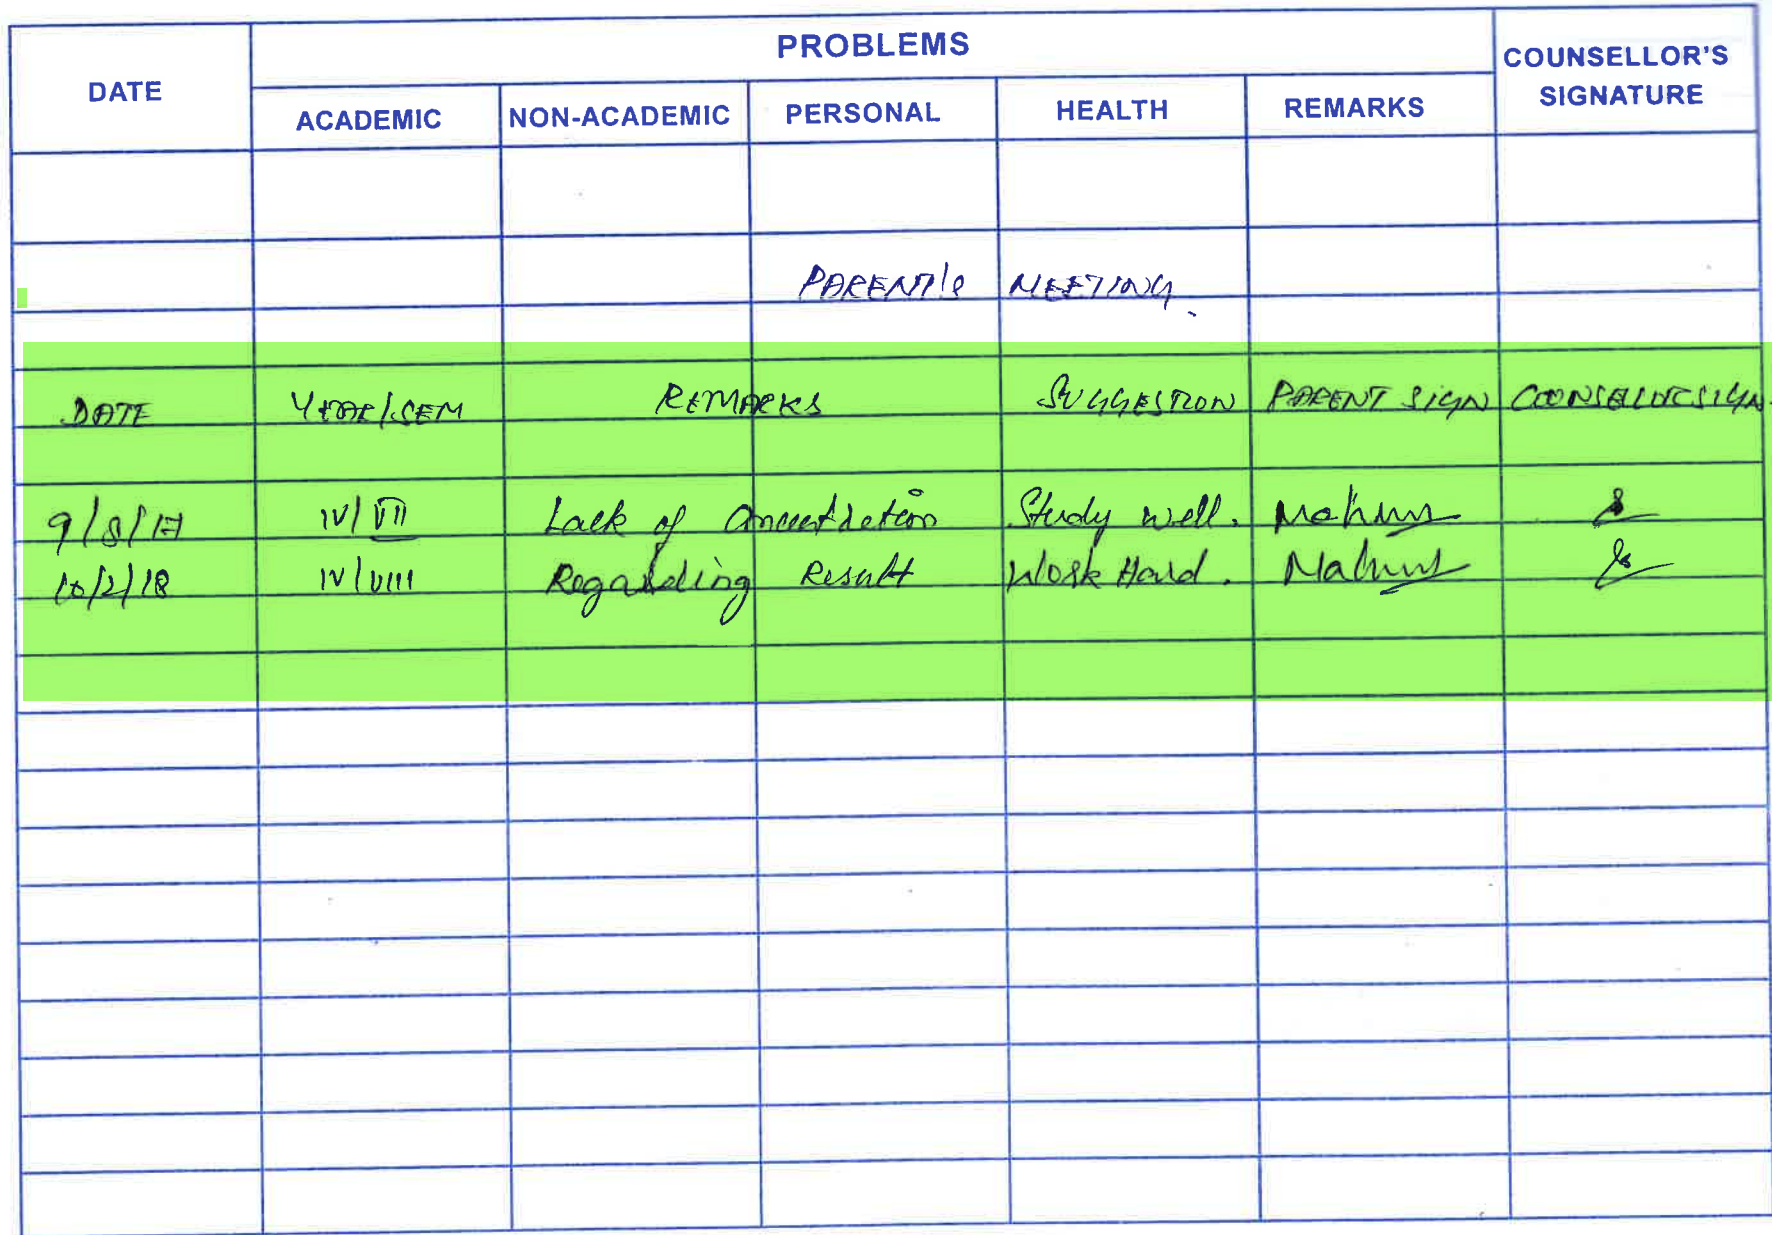 PROBLEMS
DATE
COUNSELLOR'S
SIGNATURE
ACADEMIC NON-ACADEMIC PERSONAL HEALTH REMARKS
PARENT'S MEETING.
DATE YEAR/SEM REMARKS SUGGESTION PARENT SIGN COUNSELLOR SIGN.
9/8/17 IV/VII Lack of Concentration Study well.
10/2/18 IV/VIII Regarding Result Work Hard.